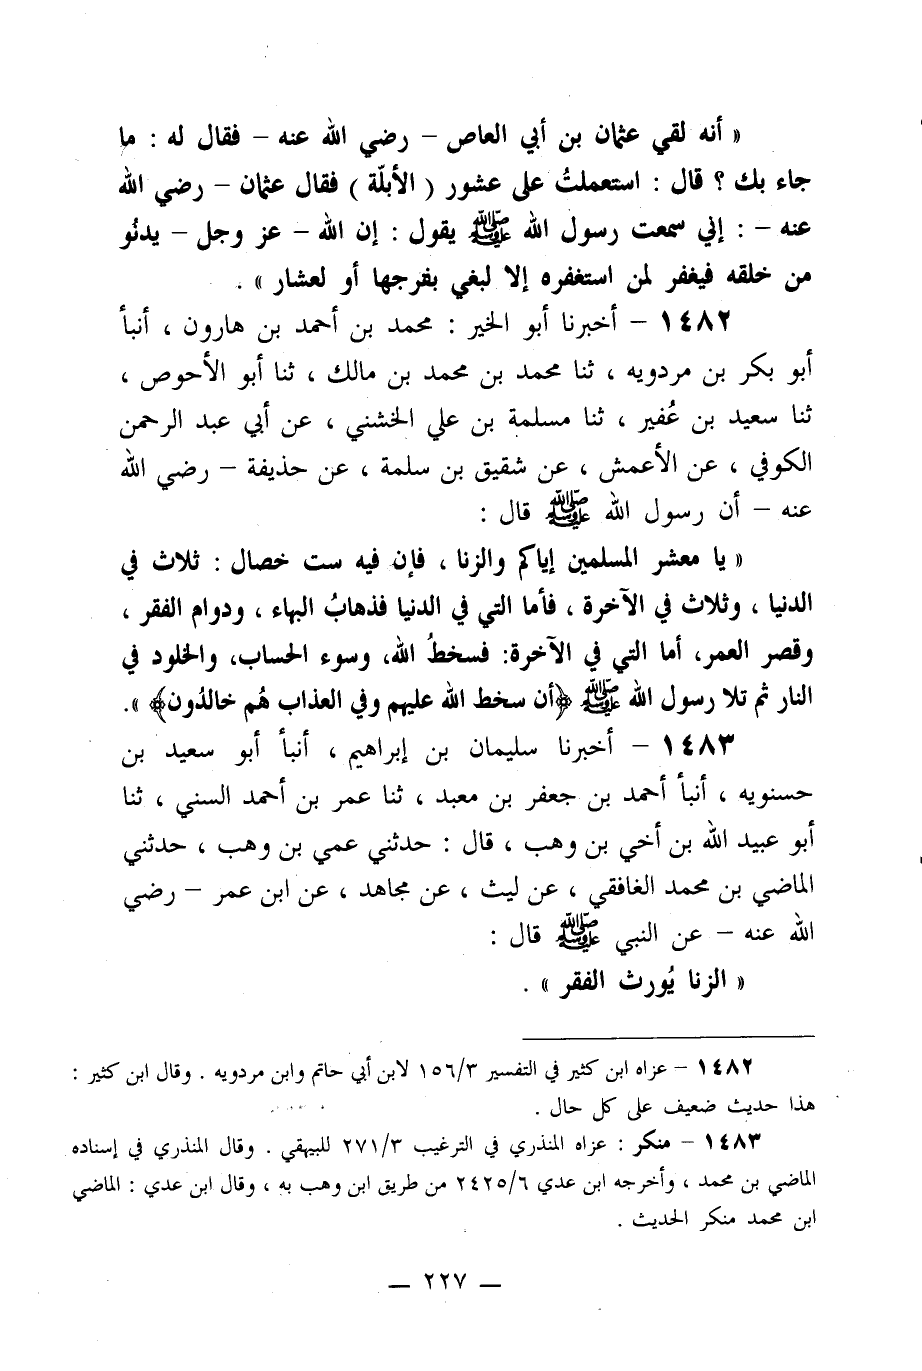 « أنه لقي عثمان بن أبي العاص – رضي الله عنه – فقال له : ما
جاء بك ؟ قال : استعملتُ على عشور ( الأبلّة ) فقال عثمان – رضي الله
عنه – : إني سمعت رسول الله ﷺ يقول : إن الله – عز وجل – يدنُو
من خلقه فيغفر لمن استغفره إلا لبغي بفرجها أو لعشار » .
١٤٨٢ – أخبرنا أبو الخير : محمد بن أحمد بن هارون ، أنبأ
أبو بكر بن مردويه ، ثنا محمد بن محمد بن مالك ، ثنا أبو الأحوص ،
ثنا سعيد بن عُفير ، ثنا مسلمة بن علي الخشني ، عن أبي عبد الرحمن
الكوفي ، عن الأعمش ، عن شقيق بن سلمة ، عن حذيفة – رضي الله
عنه – أن رسول الله ﷺ قال :
« يا معشر المسلمين إياكم والزنا ، فإن فيه ست خصال : ثلاث في
الدنيا ، وثلاث في الآخرة ، فأما التي في الدنيا فذهابُ البهاء ، ودوام الفقر ،
وقصر العمر، أما التي في الآخرة: فسخطُ الله، وسوء الحساب، والخلود في
النار ثم تلا رسول الله ﷺ ﴿أن سخط الله عليهم وفي العذاب هُم خالدُون﴾ ».
١٤٨٣ – أخبرنا سليمان بن إبراهيم ، أنبأ أبو سعيد بن
حسنويه ، أنبأ أحمد بن جعفر بن معبد ، ثنا عمر بن أحمد السني ، ثنا
أبو عبيد الله بن أخي بن وهب ، قال : حدثني عمي بن وهب ، حدثني
الماضي بن محمد الغافقي ، عن ليث ، عن مجاهد ، عن ابن عمر – رضي
الله عنه – عن النبي ﷺ قال :
« الزنا يُورث الفقر » .
١٤٨٢ – عزاه ابن كثير في التفسير ١٥٦/٣ لابن أبي حاتم وابن مردويه . وقال ابن كثير :
هذا حديث ضعيف على كل حال .
١٤٨٣ – منكر : عزاه المنذري في الترغيب ٢٧١/٣ للبيهقي . وقال المنذري في إسناده
الماضي بن محمد ، وأخرجه ابن عدي ٢٤٢٥/٦ من طريق ابن وهب به ، وقال ابن عدي : الماضي
ابن محمد منكر الحديث .
– ٢٢٧ –